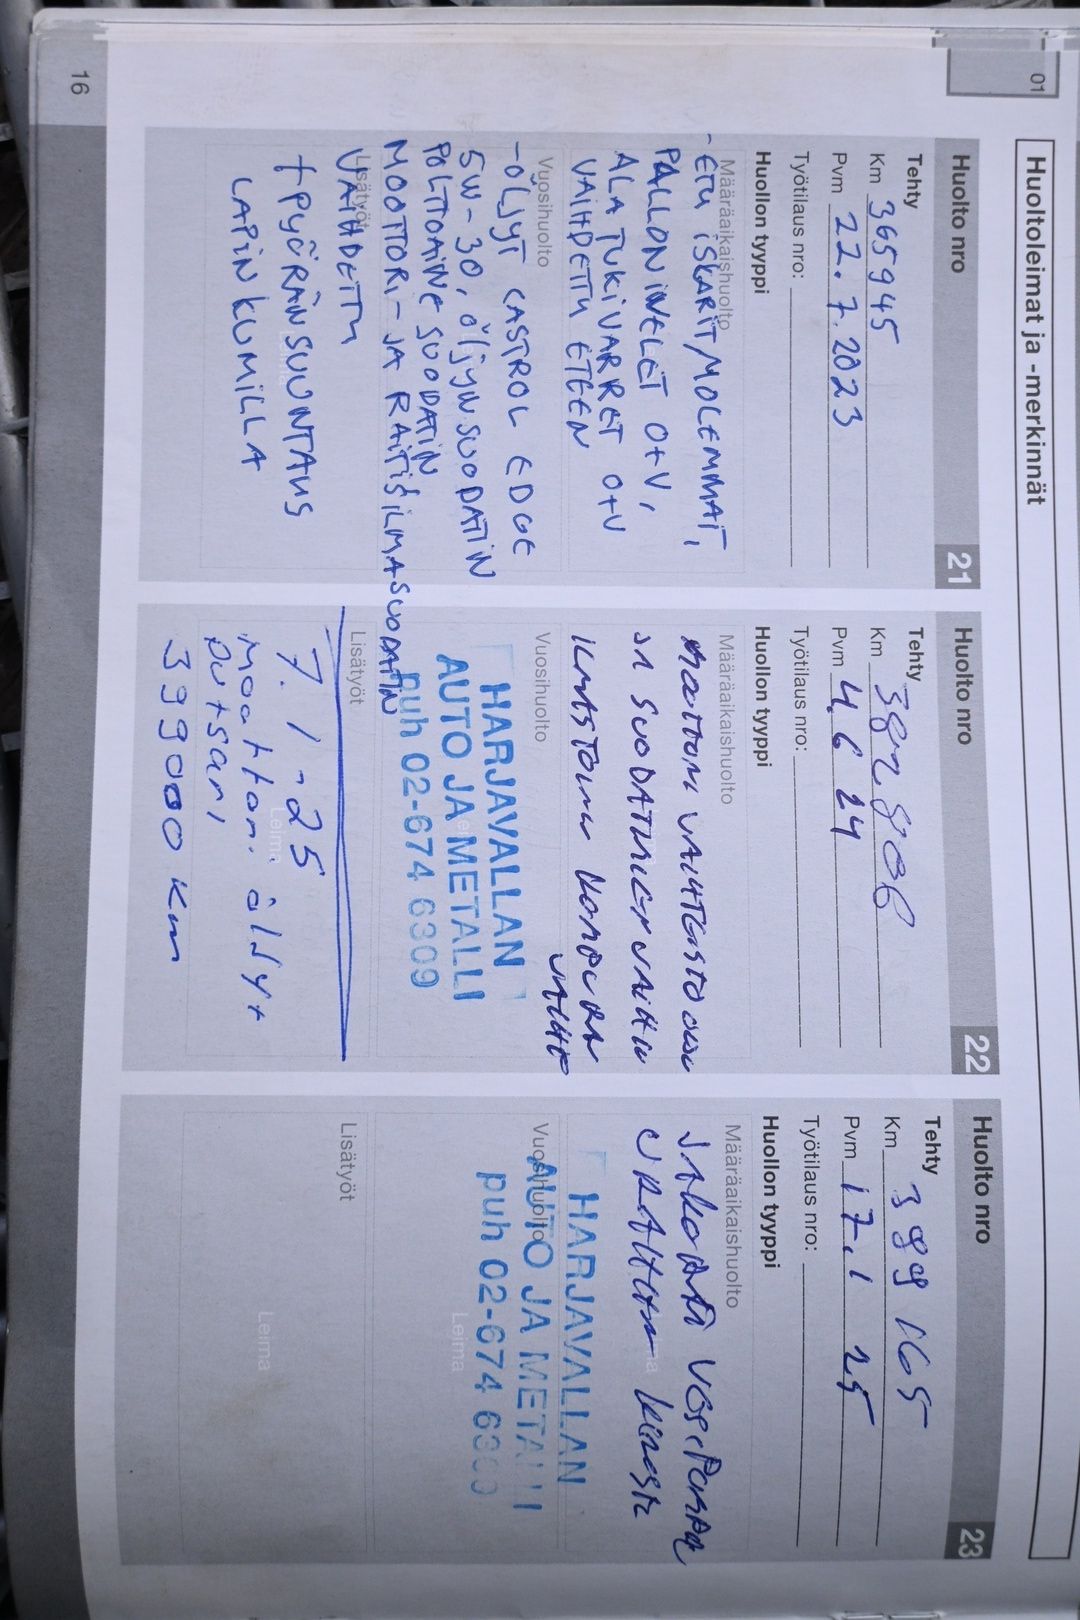 01
Huoltoleimat ja -merkinnät
Huolto nro 21
Tehty
Km 365945
Pvm 22.7.2023
Työtilaus nro:
Huollon tyyppi
Määräaikaishuolto
- ETU ISKARIT MOLEMMAT,
PALLONIVELET O+V,
ALA TUKIVARRET O+V
VAIHDETTU ETEEN
Vuosihuolto
- ÖLJYT CASTROL EDGE
5W-30, ÖLJYNSUODATIN
POLTTOAINE SUODATIN
MOOTTORI- JA RAITISILMASUODATIN
Lisätyöt
VAIHDETTU
+ PYÖRÄNSUUNTAUS
LAPIN KUMILLA
Huolto nro 22
Tehty
Km
Pvm 4.6 24
Työtilaus nro:
Huollon tyyppi
Määräaikaishuolto
VAIHTEISTO
JA
Vuosihuolto
HARJAVALLAN
AUTO JA METALLI
puh 02-674 6309
Lisätyöt
7.1-25
Leima
moottori öljy+
399000 km
Huolto nro 23
Tehty
Km 399165
Pvm 17.1 25
Työtilaus nro:
Huollon tyyppi
Määräaikaishuolto
Vuosihuolto
HARJAVALLAN
AUTO JA METALLI
puh 02-674
Leima
Lisätyöt
Leima
16